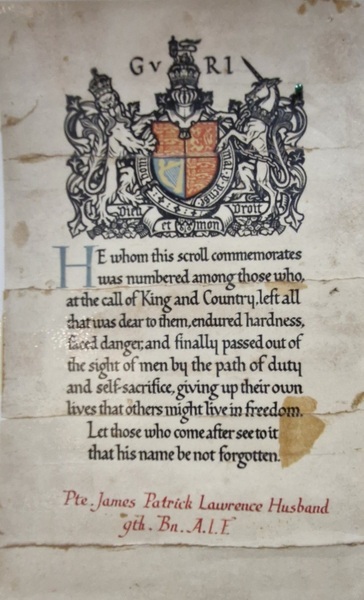 G v R I
Honi soit qui mal y pense
Dieu et mon Droit
HE whom this scroll commemorates
was numbered among those who,
at the call of King and Country, left all
that was dear to them, endured hardness,
faced danger, and finally passed out of
the sight of men by the path of duty
and self-sacrifice, giving up their own
lives that others might live in freedom.
Let those who come after see to it
that his name be not forgotten.
Pte. James Patrick Lawrence Husband
9th. Bn. A.I.F.